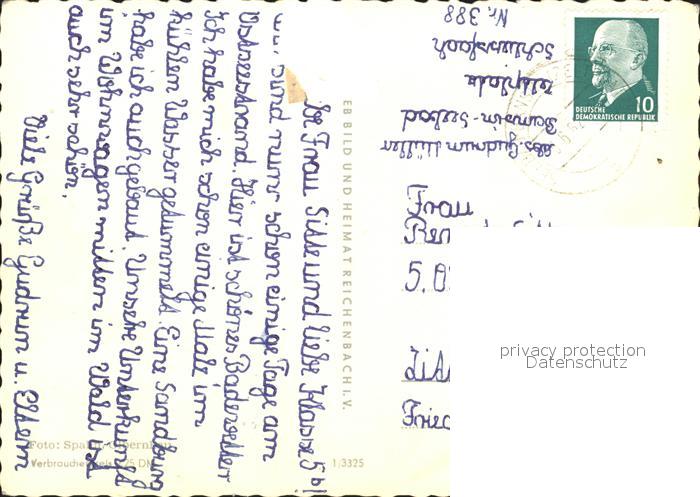 Liebe Frau Sitte und liebe Klasse 5b!
Wir sind nun schon einige Tage am
Ostseestrand. Hier ist schönes Badewetter
Ich habe mich schon einige Male im
kühlen Wasser getummelt. Eine Sandburg
habe ich auch gebaut. Unsere Unterkunft
im Wohnwagen mitten im Wald ist
auch sehr schön.
Viele Grüße Gudrun u. Eltern
EB BILD UND HEIMAT REICHENBACH I. V.
Foto:
Verbraucherpreis 0,25 DM
1/3325
Abs. Gudrun Müller
Bansin-Seebad
Zeltplatz
Nr. 388
DEUTSCHE
DEMOKRATISCHE REPUBLIK
10
Frau
5.
privacy protection
Datenschutz